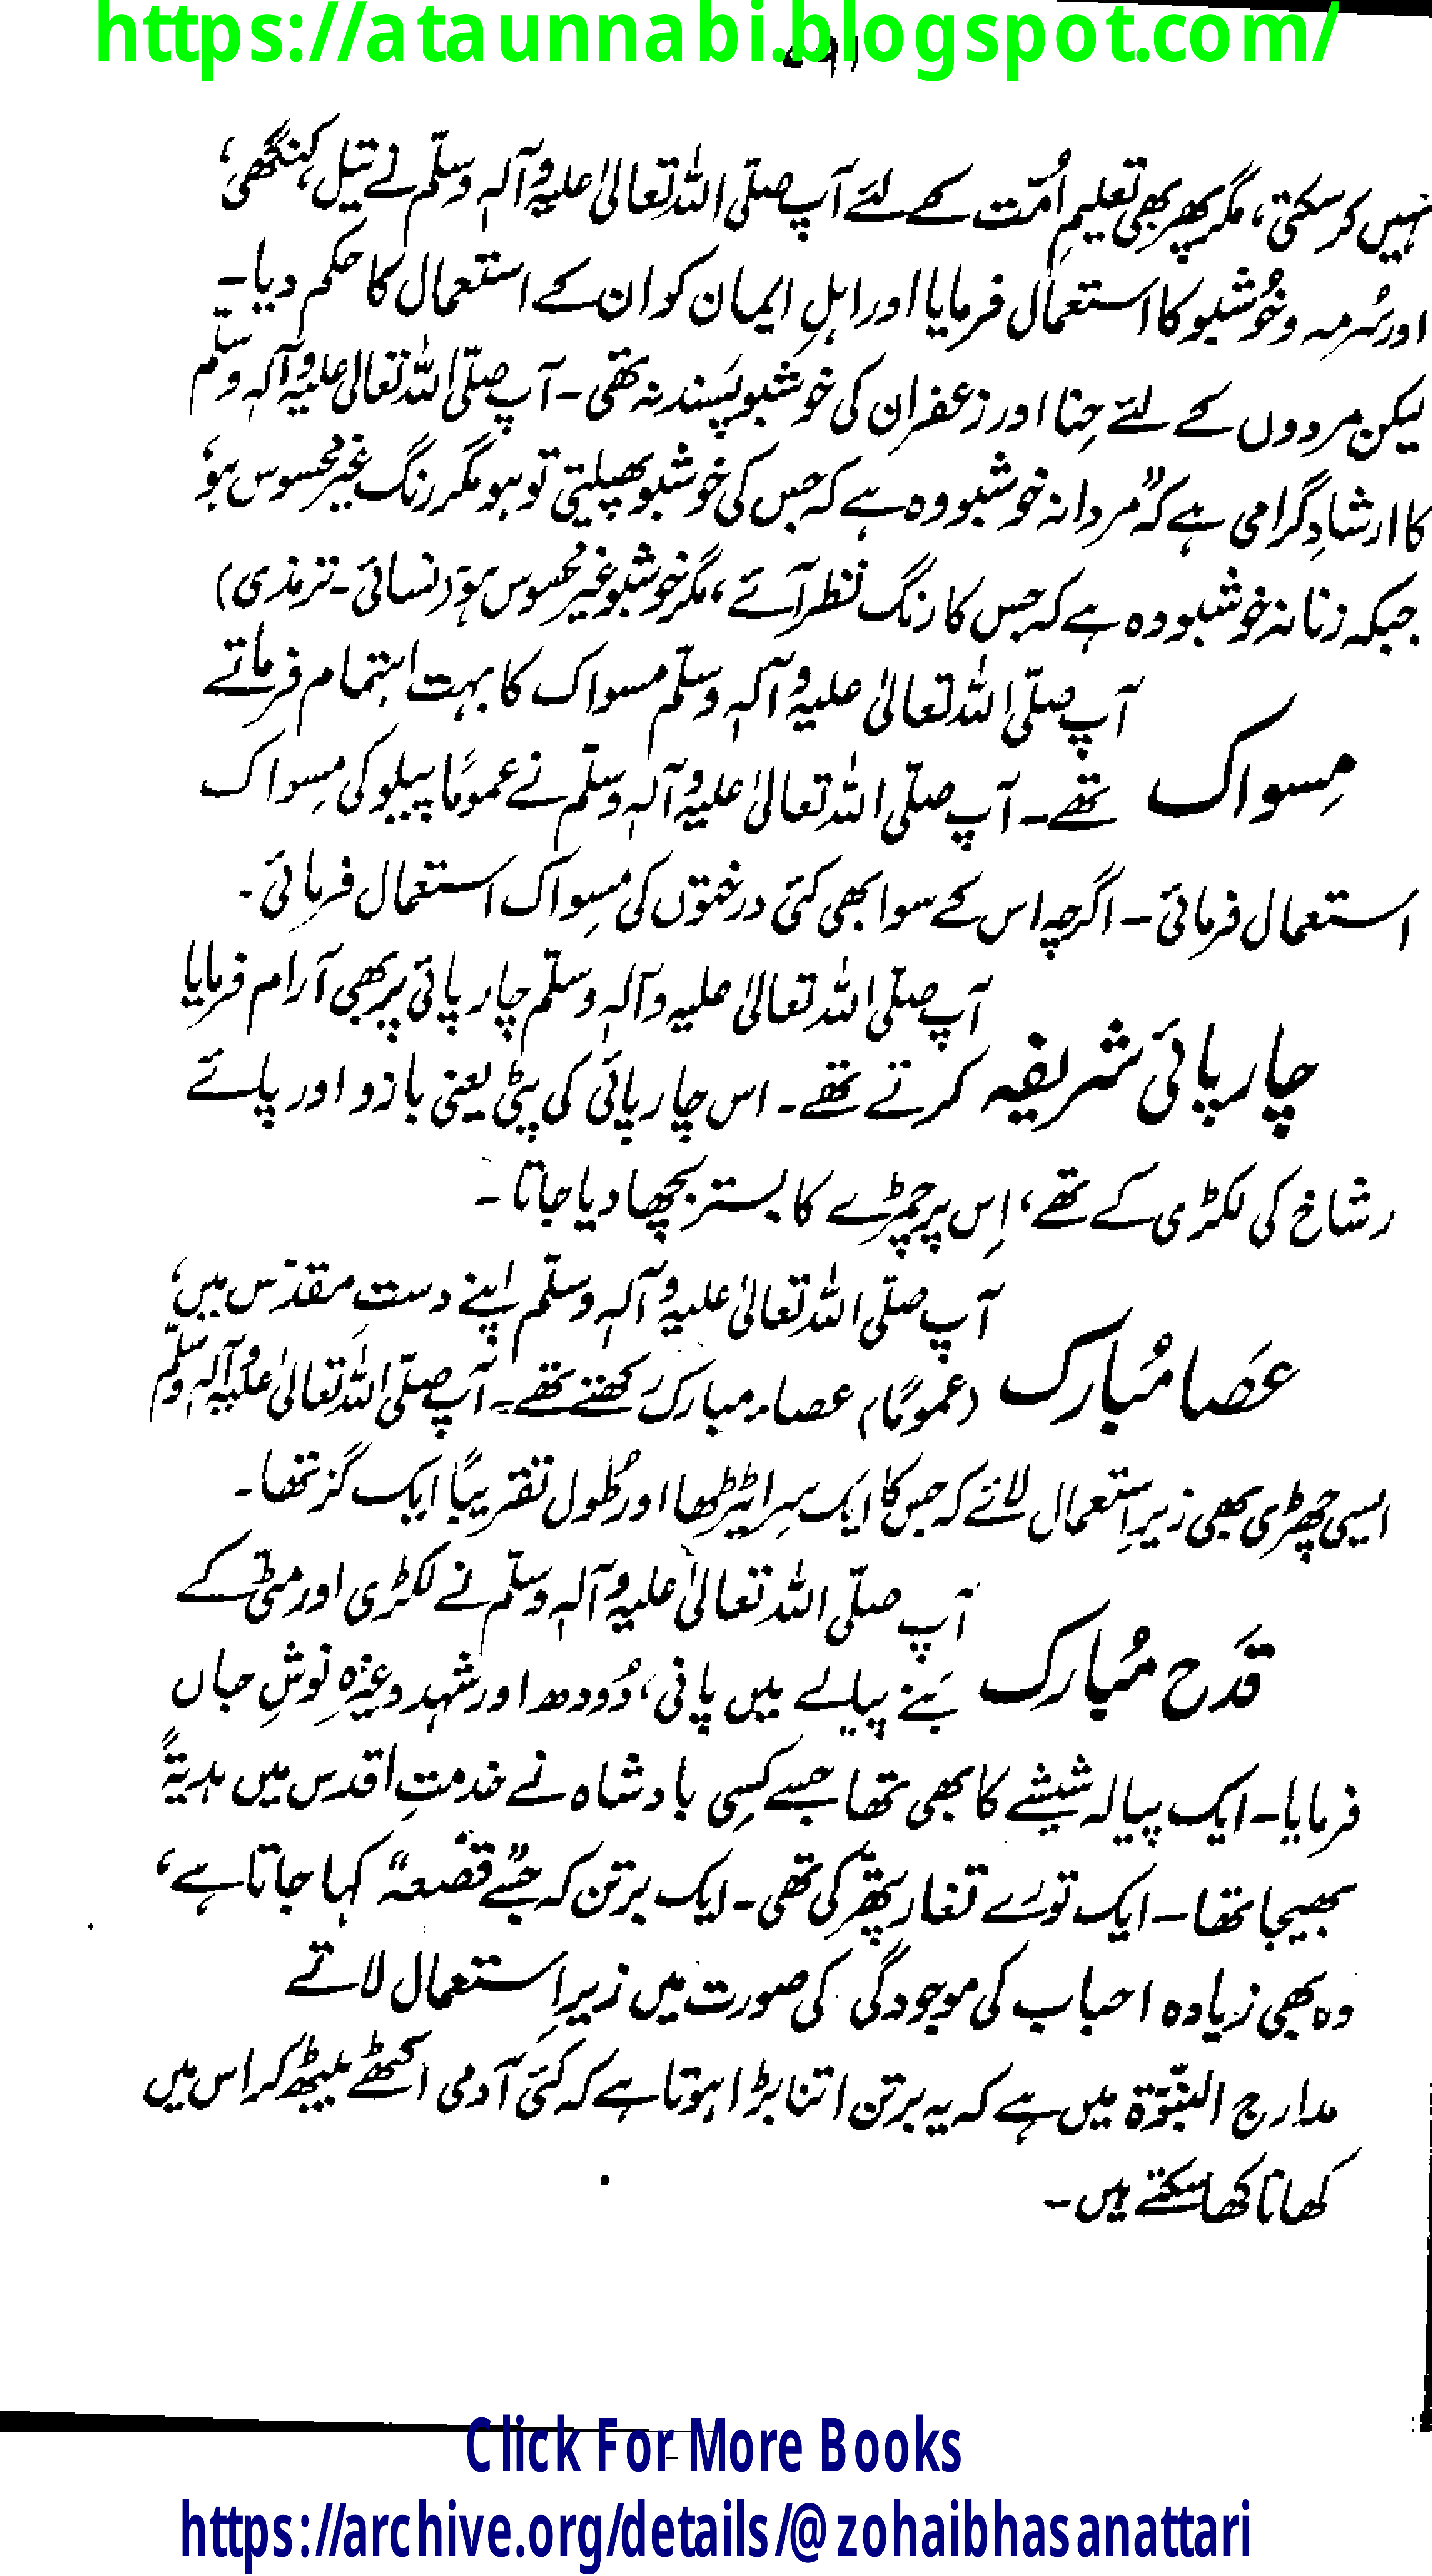 https://ataunnabi.blogspot.com/
نہیں کر سکتی، مگر پھر بھی تعلیمِ اُمّت کے لئے آپ صلّی اللہ تعالیٰ علیہ وآلہٖ وسلّم نے تیل، کنگھی،
اور سُرمہ وخُوشبو کا استعمال فرمایا اور اہلِ ایمان کو ان کے استعمال کا حکم دیا۔
لیکن مردوں کے لئے حِنا اور زعفران کی خوشبو پسند نہ تھی۔ آپ صلّی اللہ تعالیٰ علیہ وآلہٖ وسلّم
کا ارشادِ گرامی ہے کہ "مردانہ خوشبو وہ ہے کہ جس کی خوشبو پھیلتی تو ہو مگر رنگ غیر محسوس ہو،
جبکہ زنانہ خوشبو وہ ہے کہ جس کا رنگ نظر آئے، مگر خوشبو غیر محسوس ہو" (نسائی۔ ترمذی)
آپ صلّی اللہ تعالیٰ علیہ وآلہٖ وسلّم مسواک کا بہت اہتمام فرماتے
مِسواک تھے۔ آپ صلّی اللہ تعالیٰ علیہ وآلہٖ وسلّم نے عموماً پیلو کی مِسواک
استعمال فرمائی۔ اگرچہ اس کے سوا بھی کئی درختوں کی مِسواک استعمال فرمائی۔
آپ صلّی اللہ تعالیٰ علیہ وآلہٖ وسلّم چارپائی پر بھی آرام فرمایا
چارپائی شریفہ کرتے تھے۔ اس چارپائی کی پٹی یعنی بازو اور پائے
شاخ کی لکڑی کے تھے، اِس پر چمڑے کا بستر بچھا دیا جاتا۔
آپ صلّی اللہ تعالیٰ علیہ وآلہٖ وسلّم اپنے دستِ مقدّس میں،
عَصا مُبارک (عموماً) عصاء مبارک رکھتے تھے۔ آپ صلّی اللہ تعالیٰ علیہ وآلہٖ وسلّم
ایسی چھڑی بھی زیرِ استعمال لائے کہ جس کا ایک سِرا ٹیڑھا اور طُول تقریباً ایک گز تھا۔
آپ صلّی اللہ تعالیٰ علیہ وآلہٖ وسلّم نے لکڑی اور مٹی کے
قَدَح مُبارک بَنے پیالے میں پانی، دُودھ اور شہد وغیرہ نوشِ جاں
فرمایا۔ ایک پیالہ شیشے کا بھی تھا جسے کسِی بادشاہ نے خدمتِ اقدس میں ہدیۃً
بھیجا تھا۔ ایک تورے تغار پتھّر کی تھی۔ ایک برتن کہ جسے "قصعہ" کہا جاتا ہے،
وہ بھی زیادہ احباب کی موجودگی کی صورت میں زیرِ استعمال لاتے
مدارج النبّوۃ میں ہے کہ یہ برتن اتنا بڑا ہوتا ہے کہ کئی آدمی اکٹھے بیٹھ کر اس میں
کھانا کھا سکتے ہیں۔
Click For More Books
https://archive.org/details/@zohaibhasanattari